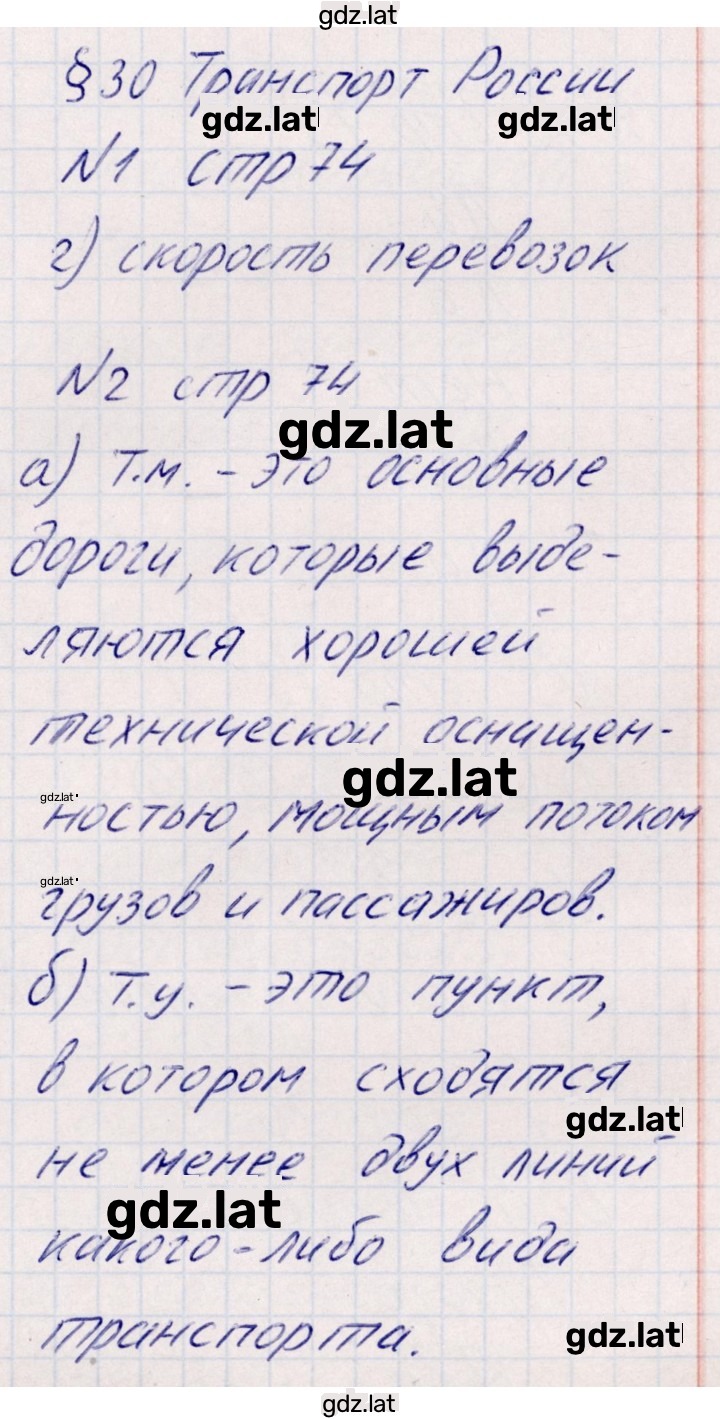 gdz.lat
§30 Транспорт России
gdz.lat gdz.lat
№1 стр 74
г) скорость перевозок
№2 стр 74
gdz.lat
а) Т.м. - это основные
дороги, которые выде-
ляются хорошей
технической оснащен-
gdz.lat
gdz.lat
ностью, мощным потоком
gdz.lat
грузов и пассажиров.
б) Т.у. - это пункт,
в котором сходятся
gdz.lat
не менее двух линий
gdz.lat
какого-либо вида
транспорта.
gdz.lat
gdz.lat